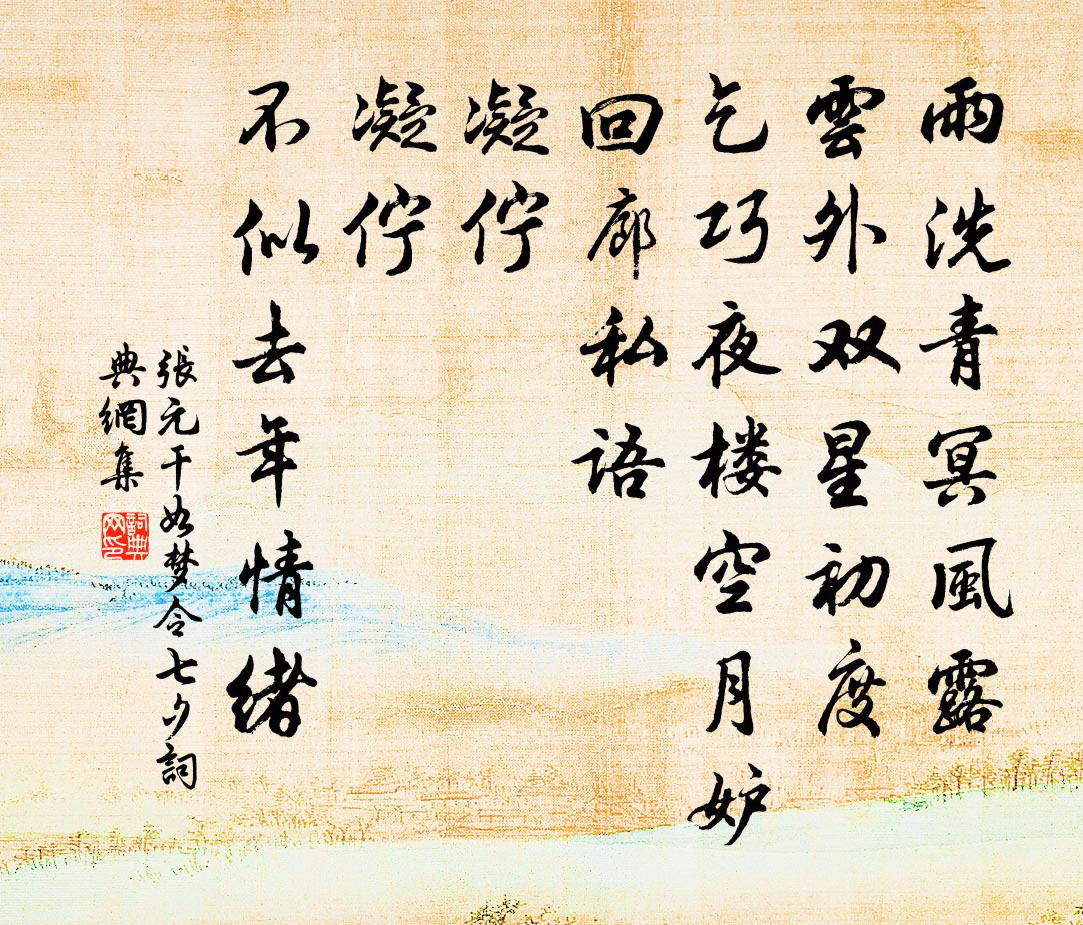 雨洗青冥風露
雲外双星初度
乞巧夜楼空月妒
回廊私語
凝佇
凝佇
不似去年情緒
張元干如梦令七夕詞
典網集
詞典網印